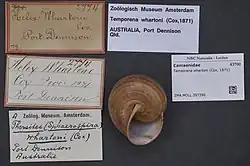 2794
Helix Whartoni
Cox
Port Dennison
2794
Helix Whartoni
Cox
Port Dennison
Zoölog. Museum, Amsterdam.
Thersites (Badistes)
Whartoni (Cox)
Port Dennison
Australia
Zoölogisch Museum Amsterdam
Temporena whartoni (Cox,1871)
AUSTRALIA, Port Dennison
Qld.
NBC Naturalis - Leiden
Camaenidae
Temporena whartoni (Cox, 1871)
ZMA.MOLL.